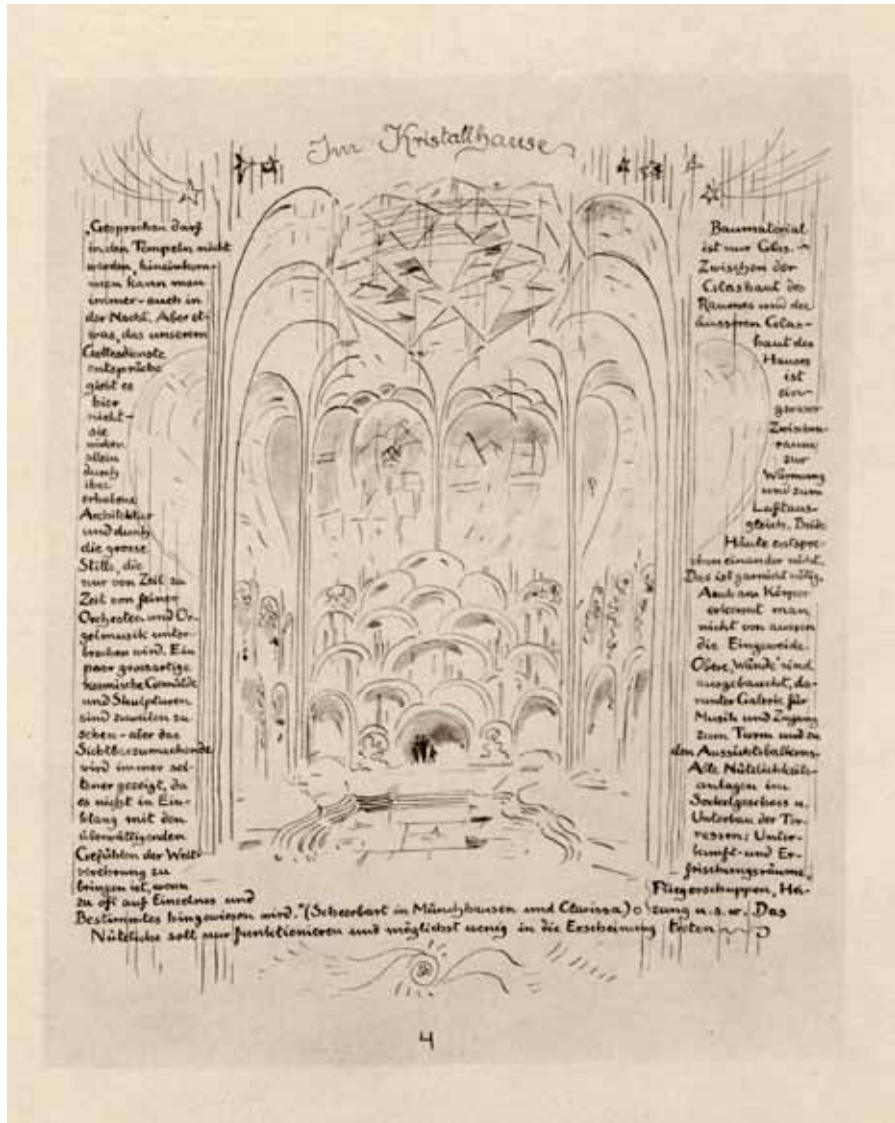 Im Kristallhause
„Gesprochen darf
in den Tempeln nicht
werden, hineinkom-
men kann man
immer - auch in
der Nacht. Aber et-
was, das unserem
Gottesdienste
entspräche
giebt es
hier
nicht -
sie
wirken
allein
durch
ihre
erhabene
Architektur
und durch
die grosse
Stille, die
nur von Zeit zu
Zeit von feiner
Orchester und Or-
gelmusik unter-
brochen wird. Ein
paar grossartige
kosmische Gemälde
und Skulpturen
sind zuweilen zu
sehen - aber das
Sichtbarzumachende
wird immer sel-
tener gezeigt, da
es nicht in Ein-
klang mit den
überwältigenden
Gefühlen der Welt-
verehrung zu
bringen ist, wenn
zu oft auf Einzelnes und
Bestimmtes hingewiesen wird." (Scheerbart in Münchhausen und Clarissa)
Baumaterial
ist nur Glas. -
Zwischen der
Glashaut des
Raumes und der
äusseren Glas-
haut des
Hauses
ist
ein
grosser
Zwischen-
raum
zur
Wärmung
und zum
Luftaus-
gleich. Beide
Häute entspre-
chen einander nicht.
Das ist garnicht nötig.
Auch am Körper
erkennt man
nicht von aussen
die Eingeweide.
Obere „Wände" sind
ausgebaucht, da-
runter Galerie für
Musik und Zugang
zum Turm und zu
den Aussichtsbalkons.
Alle Nützlichkeits-
anlagen im
Sockelgeschoss u.
Unterbau der Ter-
rassen: Unter-
kunft- und Er-
frischungsräume,
Fliegerschuppen, Hei-
zung u.s.w. Das
Nützliche soll nur funktionieren und möglichst wenig in die Erscheinung treten
4